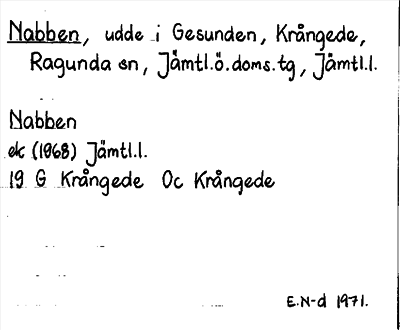 Nabben, udde i Gesunden, Krångede,
Ragunda sn, Jämtl.ö.doms.tg, Jämtl.l.
Nabben
ek (1968) Jämtl.l.
19 G Krångede Oc Krångede
E.N-d 1971.